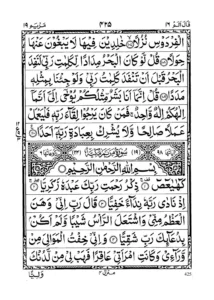 قال الم ١٦ ٤٢٥ مريم ١٩
الْفِرْدَوْسِ نُزُلًا ۙ خٰلِدِيْنَ فِيْهَا لَا يَبْغُوْنَ عَنْهَا
حِوَلًا قُلْ لَّوْ كَانَ الْبَحْرُ مِدَادًا لِّكَلِمٰتِ رَبِّيْ لَنَفِدَ
الْبَحْرُ قَبْلَ اَنْ تَنْفَدَ كَلِمٰتُ رَبِّيْ وَلَوْ جِئْنَا بِمِثْلِهٖ
مَدَدًا قُلْ اِنَّمَآ اَنَا بَشَرٌ مِّثْلُكُمْ يُوْحٰٓى اِلَيَّ اَنَّمَآ
اِلٰهُكُمْ اِلٰهٌ وَّاحِدٌ ۚ فَمَنْ كَانَ يَرْجُوْا لِقَآءَ رَبِّهٖ فَلْيَعْمَلْ
عَمَلًا صَالِحًا وَّلَا يُشْرِكْ بِعِبَادَةِ رَبِّهٖٓ اَحَدًا
بِسْمِ اللّٰهِ الرَّحْمٰنِ الرَّحِيْمِ
كٓهٰيٰعٓصٓ ذِكْرُ رَحْمَتِ رَبِّكَ عَبْدَهٗ زَكَرِيَّا
اِذْ نَادٰى رَبَّهٗ نِدَآءً خَفِيًّا قَالَ رَبِّ اِنِّيْ وَهَنَ
الْعَظْمُ مِنِّيْ وَاشْتَعَلَ الرَّاْسُ شَيْبًا وَّلَمْ اَكُنْۢ
بِدُعَآئِكَ رَبِّ شَقِيًّا وَاِنِّيْ خِفْتُ الْمَوَالِيَ مِنْ
وَّرَآءِيْ وَكَانَتِ امْرَاَتِيْ عَاقِرًا فَهَبْ لِيْ مِنْ لَّدُنْكَ
وَلِيًّا